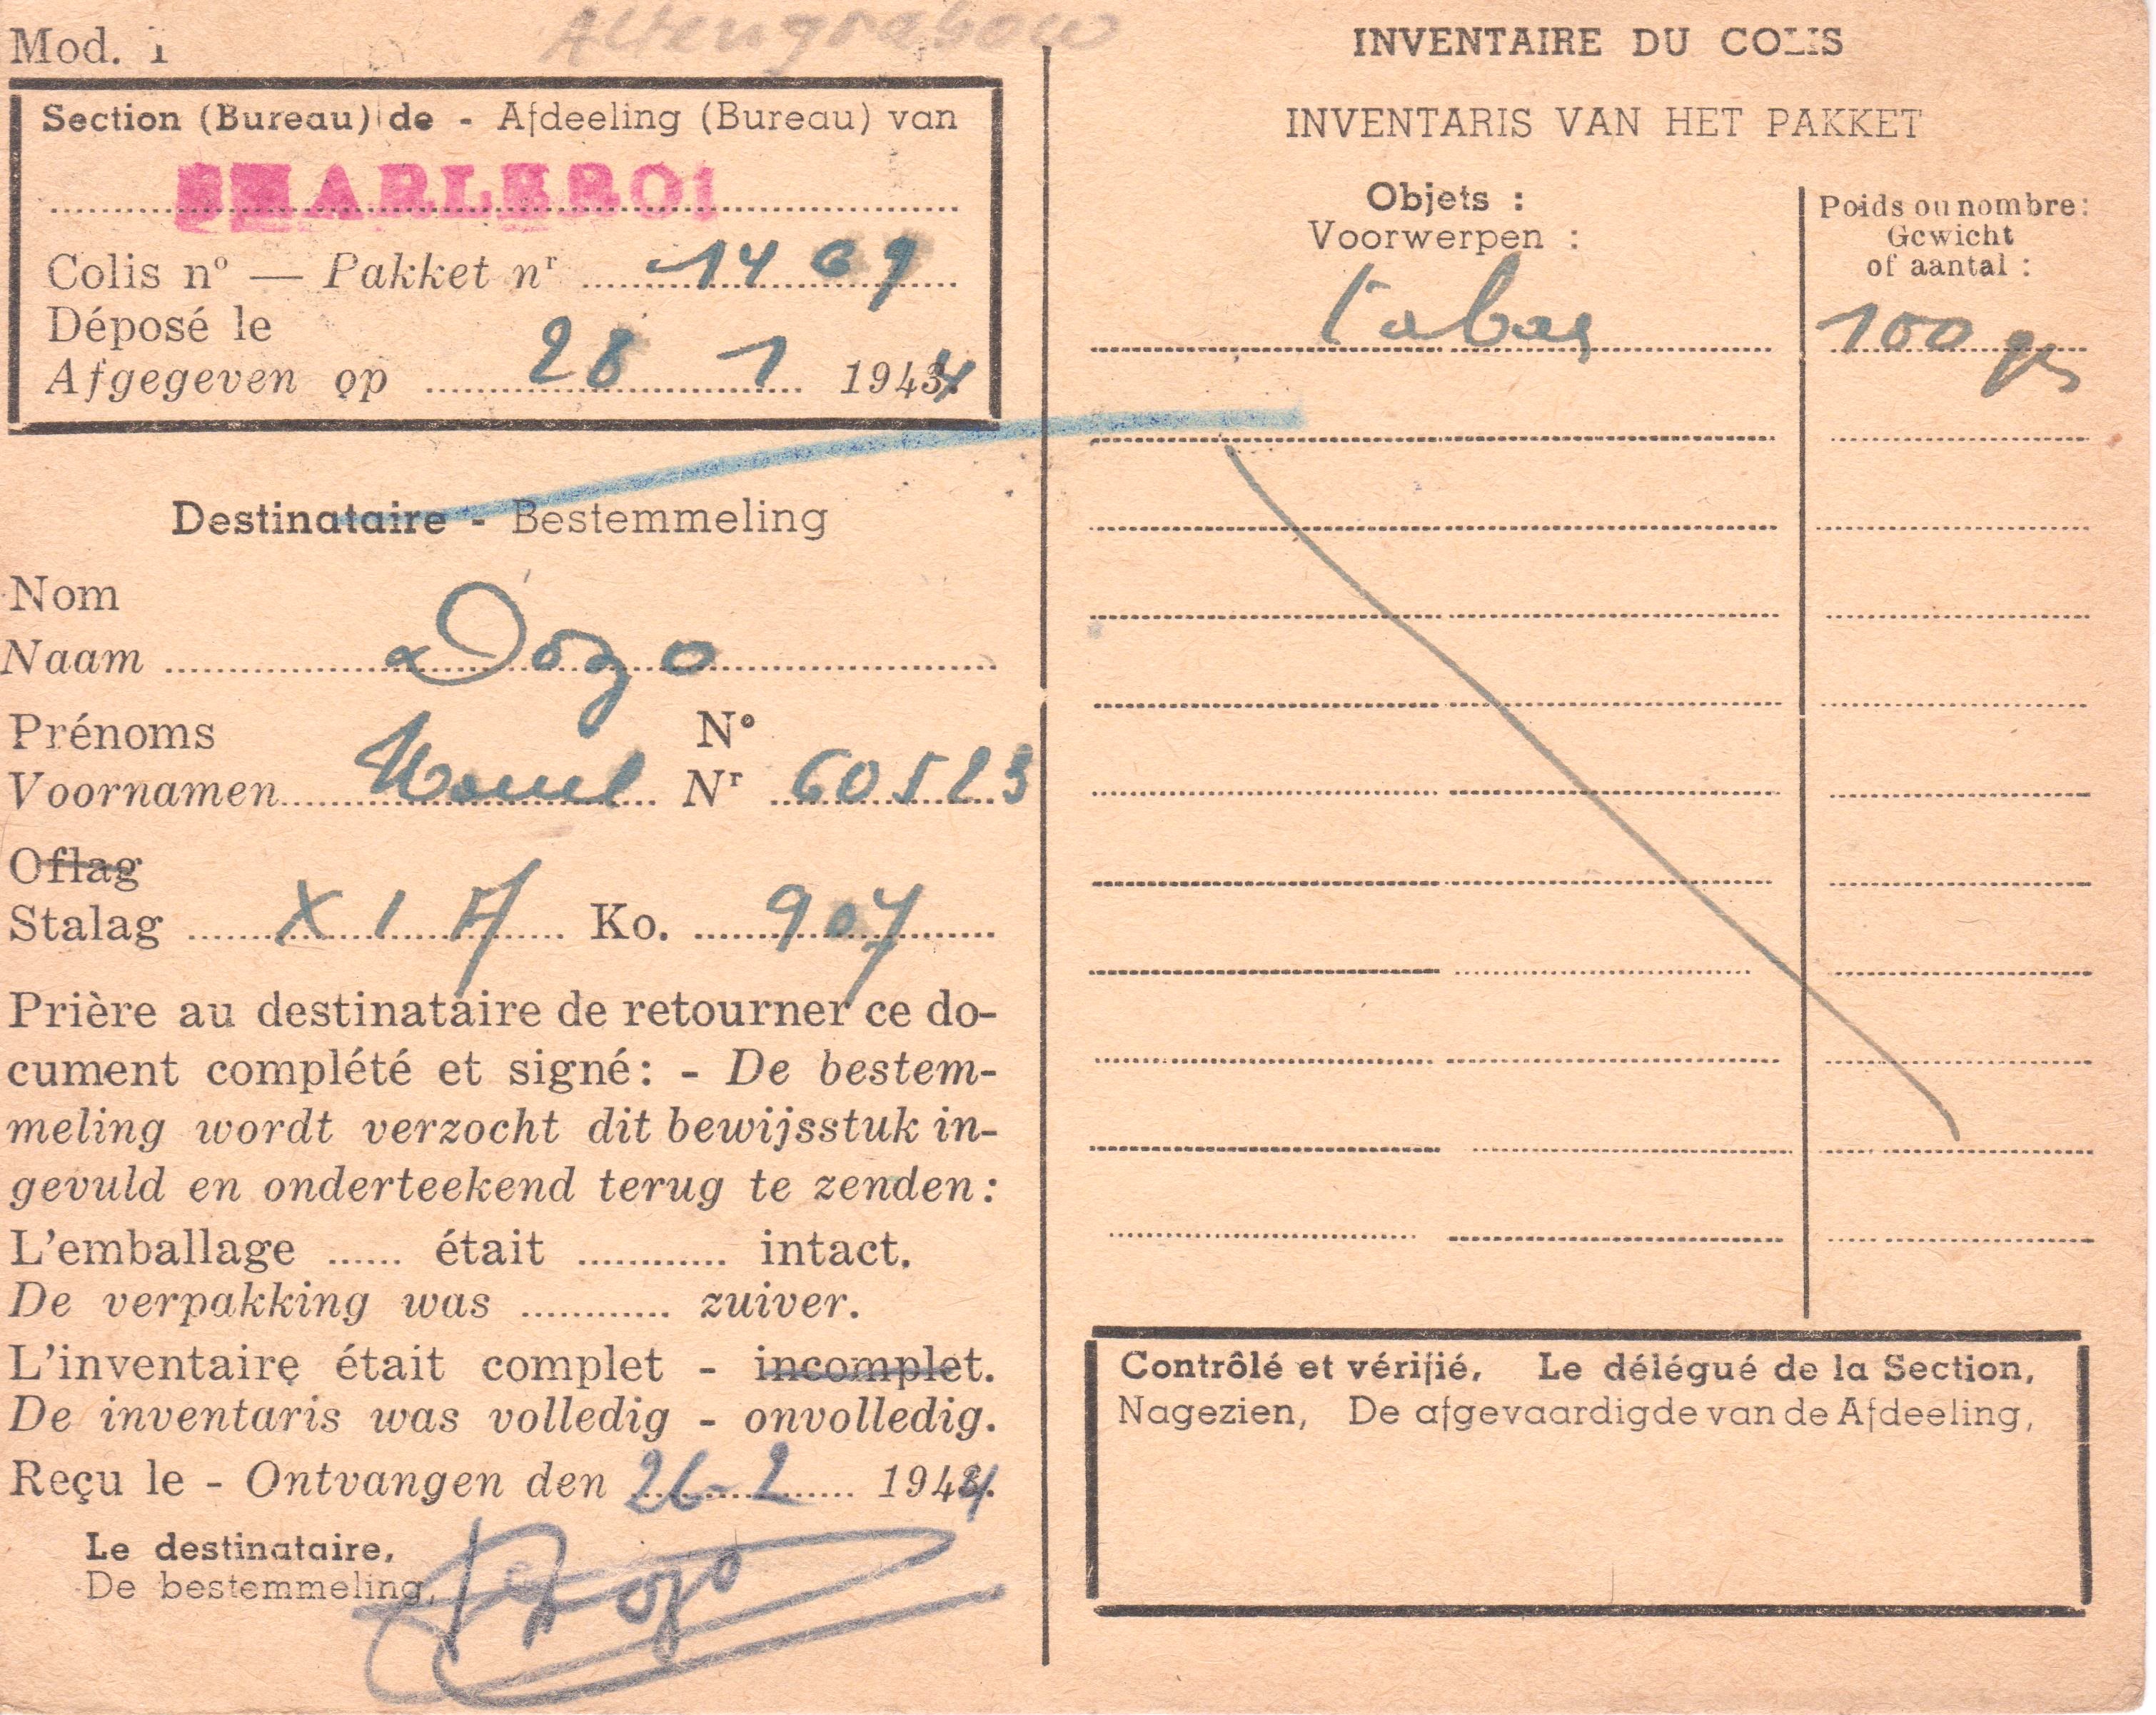 Altengrabow
Mod. 1
Section (Bureau) de - Afdeeling (Bureau) van
CHARLEROI
Colis nº — Pakket nʳ 1409
Déposé le
Afgegeven op 28 1 1944
Destinataire - Bestemmeling
Nom
Naam Dozo
Prénoms Nº
Voornamen Nʳ 60523
Oflag
Stalag XI A Ko. 907
Prière au destinataire de retourner ce do-
cument complété et signé: - De bestem-
meling wordt verzocht dit bewijsstuk in-
gevuld en onderteekend terug te zenden:
L'emballage ...... était ............ intact.
De verpakking was ............ zuiver.
L'inventaire était complet - incomplet.
De inventaris was volledig - onvolledig.
Reçu le - Ontvangen den 26-2 1944.
Le destinataire,
De bestemmeling,
Dozo
INVENTAIRE DU COLIS
INVENTARIS VAN HET PAKKET
Objets :
Voorwerpen :
Poids ou nombre:
Gewicht
of aantal :
tabac 100 gr
Contrôlé et vérifié, Le délégué de la Section,
Nagezien, De afgevaardigde van de Afdeeling,